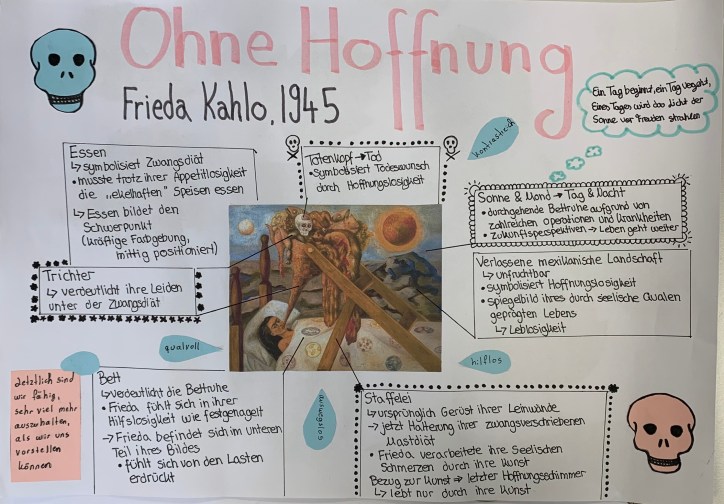 Ohne Hoffnung
Frieda Kahlo, 1945
Ein Tag beginnt, ein Tag vergeht,
Eines Tages wird das Licht der
Sonne vor Freuden strahlen
kontrastreich
Essen
↳ symbolisiert Zwangsdiät
• musste trotz ihrer Appetitlosigkeit
die „ekelhaften" Speisen essen
↳ Essen bildet den
Schwerpunkt
(kräftige Farbgebung,
mittig positioniert)
Totenkopf → Tod
• Symbolisiert Todeswunsch
durch Hoffnungslosigkeit
Sonne & Mond → Tag & Nacht
• durchgehende Bettruhe aufgrund von
zahlreichen operationen und Krankheiten
• Zukunftsperspektiven → Leben geht weiter
Trichter
↳ verdeutlicht ihre Leiden
unter der Zwangsdiät
Verlassene mexikanische Landschaft
↳ unfruchtbar
• symbolisiert Hoffnungslosigkeit
• spiegelbild ihres durch seelische Qualen
geprägten Lebens
↳ Leblosigkeit
qualvoll
hilflos
Letztlich sind
wir fähig,
sehr viel mehr
auszuhalten,
als wir uns
vorstellen
können
Bett
↳ verdeutlicht die Bettruhe
• Frieda fühlt sich in ihrer
Hilfslosigkeit wie festgenagelt
→ Frieda befindet sich im unteren
Teil ihres Bildes
• fühlt sich von den Lasten
erdrückt
Staffelei
↳ ursprünglich Gerüst ihrer Leinwände
→ jetzt Halterung ihrer zwangsverschriebenen
Mastdiät
• Frieda verarbeitete ihre Seelischen
Schmerzen durch ihre Kunst
Bezug zur Kunst → letzter Hoffnungsschimmer
↳ lebt nur durch ihre Kunst